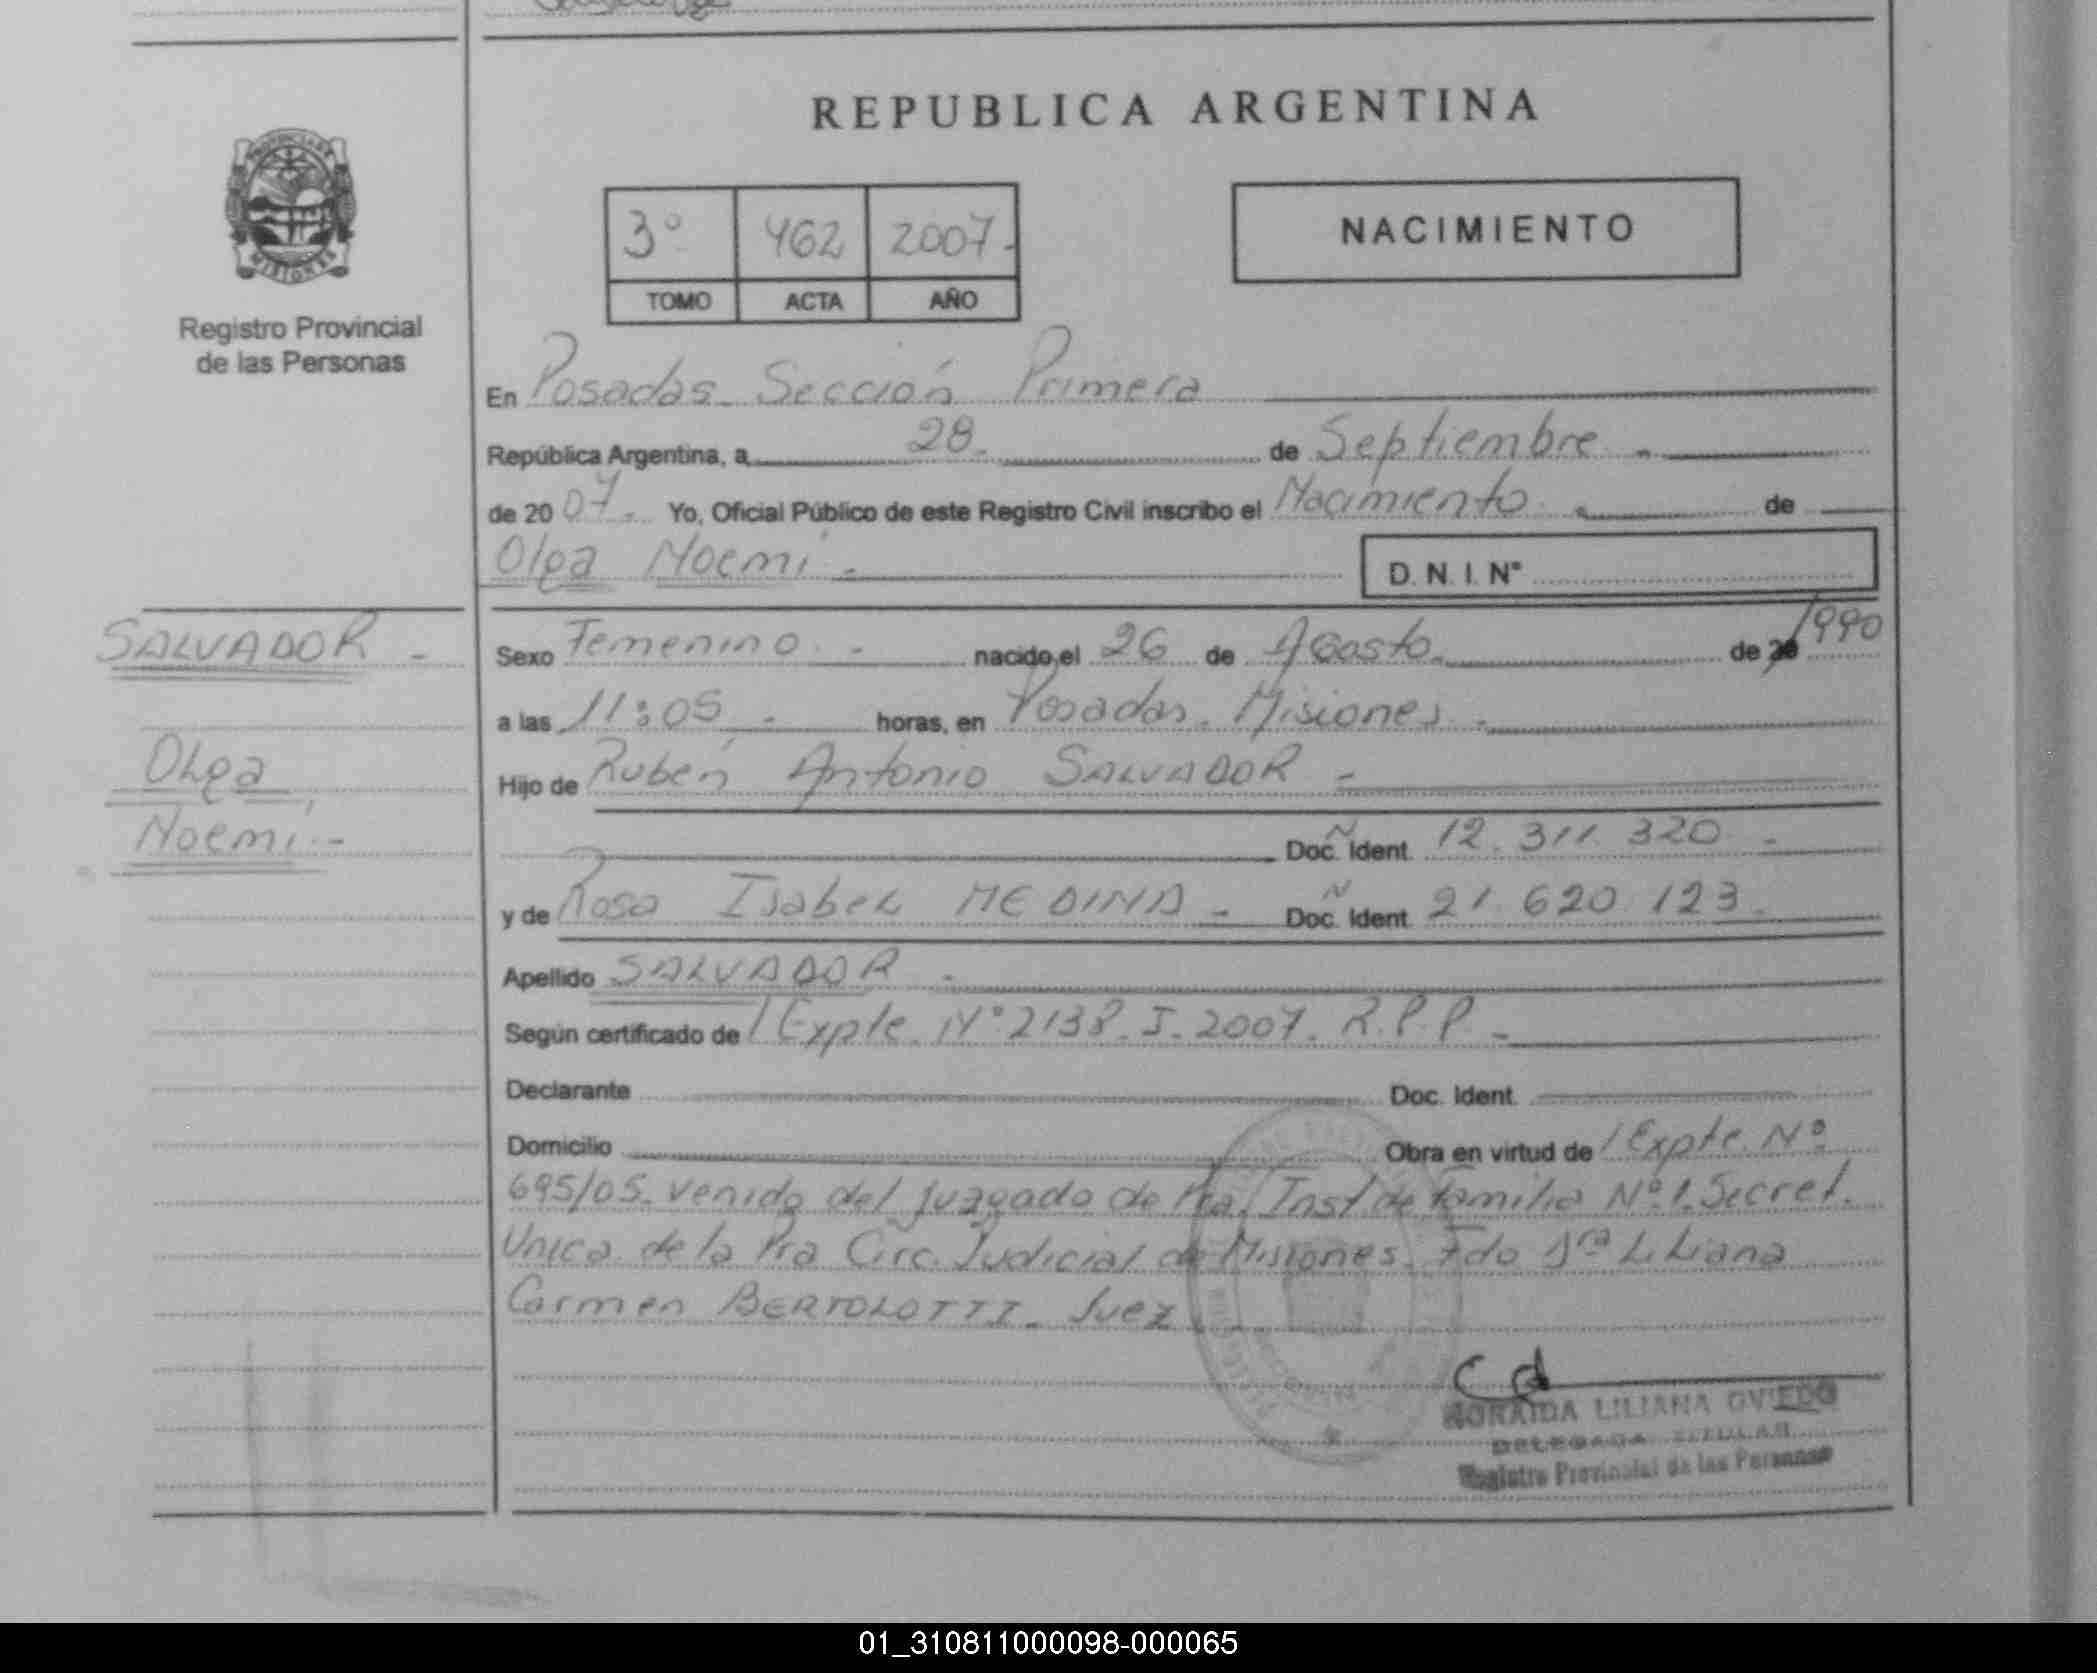 REPUBLICA ARGENTINA
PROVINCIA DE
MISIONES
Registro Provincial
de las Personas
3º 462 2007.-
TOMO ACTA AÑO
NACIMIENTO
En Posadas Sección Primera
República Argentina, a 28. de Septiembre
de 20 07.- Yo, Oficial Público de este Registro Civil inscribo el Nacimiento de
Olga Noemí.-
D. N. I. Nº
SALVADOR -
Olga
Noemí.-
Sexo Femenino.- nacido el 26 de Agosto de 20 1990
a las 11:05 - horas, en Posadas. Misiones.
Hijo de Rubén Antonio SALVADOR -
Doc. Ident. 12.311.320.-
y de Rosa Isabel MEDINA - Doc. Ident. 21.620.123.
Apellido SALVADOR -
Según certificado de / Expte. Nº 2138. I. 2007. R.P.P.-
Declarante Doc. Ident.
Domicilio Obra en virtud de / Expte. Nº
695/05. venido del juzgado de Pra. Inst de Familia Nº 1. Secret.
Unica de la Pra Circ. Judicial de Misiones. Fdo Dra Liliana
Carmen BERTOLOTTI. Juez
LILIANA OVIEDO
DELEGADA TITULAR
Registro Provincial de las Personas
01_310811000098-000065